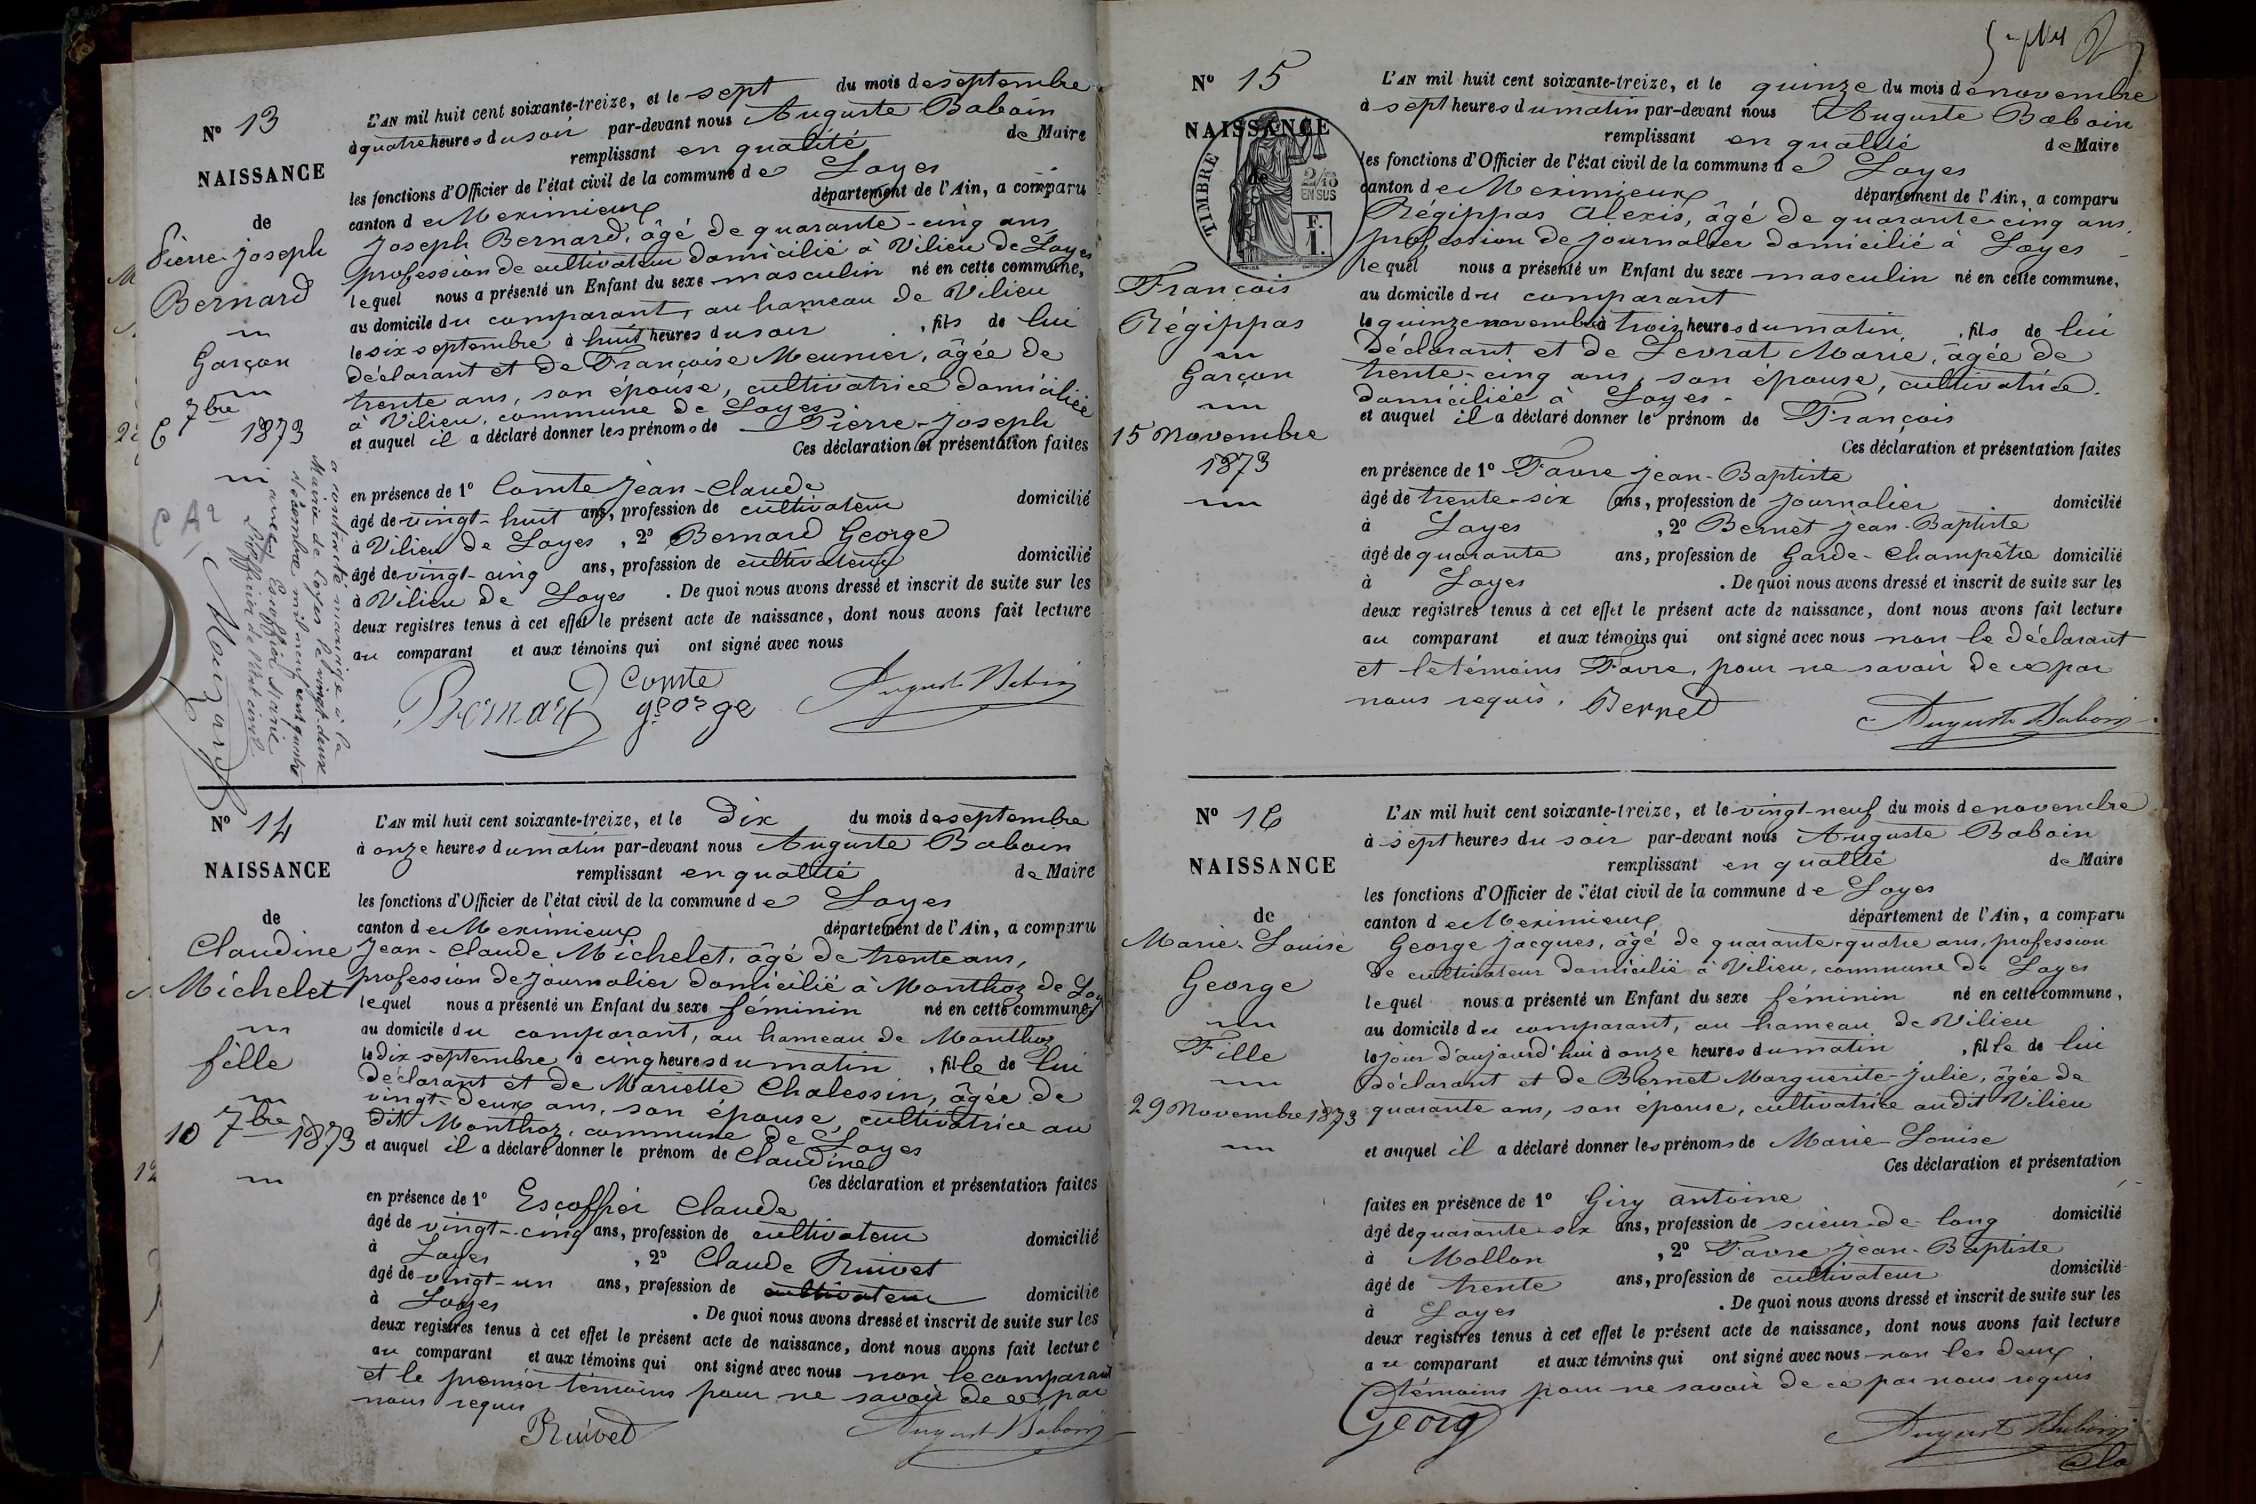 N° 13
NAISSANCE
de
Pierre-Joseph
Bernard
Garçon
6 7bre 1873
a contracté mariage à la
Mairie de Loyes le vingt-deux
décembre mil neuf cent quatre
avec Escoffier Marie
L'officier de l'état civil
L'AN mil huit cent soixante-treize, et le sept du mois de septembre
à quatre heures du soir par-devant nous Auguste Baboin
remplissant en qualité de Maire
les fonctions d'Officier de l'état civil de la commune de Loyes
canton de Meximieux département de l'Ain, a comparu
Joseph Bernard, âgé de quarante-cinq ans
profession de cultivateur domicilié à Vilieu de Loyes
lequel nous a présenté un Enfant du sexe masculin né en cette commune,
au domicile du comparant, au hameau de Vilieu
le six septembre à huit heures du soir, fils de lui
déclarant et de Françoise Meunier, âgée de
trente ans, son épouse, cultivatrice domiciliée
à Vilieu, commune de Loyes
et auquel il a déclaré donner les prénoms de Pierre-Joseph
Ces déclaration et présentation faites
en présence de 1° Comte Jean-Claude
âgé de vingt-huit ans, profession de cultivateur domicilié
à Vilieu de Loyes, 2° Bernard George
âgé de vingt-cinq ans, profession de cultivateur domicilié
à Vilieu de Loyes. De quoi nous avons dressé et inscrit de suite sur les
deux registres tenus à cet effet le présent acte de naissance, dont nous avons fait lecture
au comparant et aux témoins qui ont signé avec nous
Comte
Bernard george Auguste Baboin
N° 14
NAISSANCE
de
Claudine
Michelet
fille
10 7bre 1873
L'AN mil huit cent soixante-treize, et le Dix du mois de septembre
à onze heures du matin par-devant nous Auguste Baboin
remplissant en qualité de Maire
les fonctions d'Officier de l'état civil de la commune de Loyes
canton de Meximieux département de l'Ain, a comparu
Jean-Claude Michelet, âgé de trente ans,
profession de journalier domicilié à Monthoz de Loy
lequel nous a présenté un Enfant du sexe féminin né en cette commune,
au domicile du comparant, au hameau de Monthoz
le dix septembre à cinq heures du matin, fille de lui
déclarant et de Mariette Chalessin, âgée de
vingt-deux ans, son épouse, cultivatrice au
dit Monthoz, commune de Loyes
et auquel il a déclaré donner le prénom de Claudine
Ces déclaration et présentation faites
en présence de 1° Escoffier Claude
âgé de vingt-cinq ans, profession de cultivateur domicilié
à Loyes, 2° Claude Ruivet
âgé de vingt-un ans, profession de cultivateur domicilié
à Loyes. De quoi nous avons dressé et inscrit de suite sur les
deux registres tenus à cet effet le présent acte de naissance, dont nous avons fait lecture
au comparant et aux témoins qui ont signé avec nous non le comparant
et le premier témoins pour ne savoir de ce par
nous requis
Ruivet Auguste Baboin
N° 15
NAISSANCE
de
TIMBRE
2/10
EN SUS
F.
1.
François
Régippas
Garçon
15 Novembre
1873
L'AN mil huit cent soixante-treize, et le quinze du mois de novembre
à sept heures du matin par-devant nous Auguste Baboin
remplissant en qualité de Maire
les fonctions d'Officier de l'état civil de la commune de Loyes
canton de Meximieux département de l'Ain, a comparu
Régippas Alexis, âgé de quarante-cinq ans,
profession de journalier domicilié à Loyes
lequel nous a présenté un Enfant du sexe masculin né en cette commune,
au domicile du comparant
le quinze novembre à trois heures du matin, fils de lui
déclarant et de Levrat Marie, âgée de
trente-cinq ans, son épouse, cultivatrice
domiciliée à Loyes
et auquel il a déclaré donner le prénom de François
Ces déclaration et présentation faites
en présence de 1° Favre Jean-Baptiste
âgé de trente-six ans, profession de journalier domicilié
à Loyes, 2° Bernet Jean-Baptiste
âgé de quarante ans, profession de Garde-Champêtre domicilié
à Loyes. De quoi nous avons dressé et inscrit de suite sur les
deux registres tenus à cet effet le présent acte de naissance, dont nous avons fait lecture
au comparant et aux témoins qui ont signé avec nous non le déclarant
et le témoins Favre, pour ne savoir de ce par
nous requis. Bernet
Auguste Baboin
N° 16
NAISSANCE
de
Marie-Louise
George
Fille
29 Novembre 1873
L'AN mil huit cent soixante-treize, et le vingt-neuf du mois de novembre
à sept heures du soir par-devant nous Auguste Baboin
remplissant en qualité de Maire
les fonctions d'Officier de l'état civil de la commune de Loyes
canton de Meximieux département de l'Ain, a comparu
George Jacques, âgé de quarante-quatre ans, profession
de cultivateur domicilié à Vilieu, commune de Loyes
lequel nous a présenté un Enfant du sexe féminin né en cette commune,
au domicile du comparant, au hameau de Vilieu
le jour d'aujourd'hui à onze heures du matin, fille de lui
déclarant et de Bernet Marguerite-Julie, âgée de
quarante ans, son épouse, cultivatrice audit Vilieu
et auquel il a déclaré donner les prénoms de Marie-Louise
Ces déclaration et présentation
faites en présence de 1° Giry antoine
âgé de quarante-six ans, profession de scieur-de-long domicilié
à Mollon, 2° Favre Jean-Baptiste
âgé de trente ans, profession de cultivateur domicilié
à Loyes. De quoi nous avons dressé et inscrit de suite sur les
deux registres tenus à cet effet le présent acte de naissance, dont nous avons fait lecture
au comparant et aux témoins qui ont signé avec nous non les deux
témoins pour ne savoir de ce par nous requis
Georg
Auguste Baboin